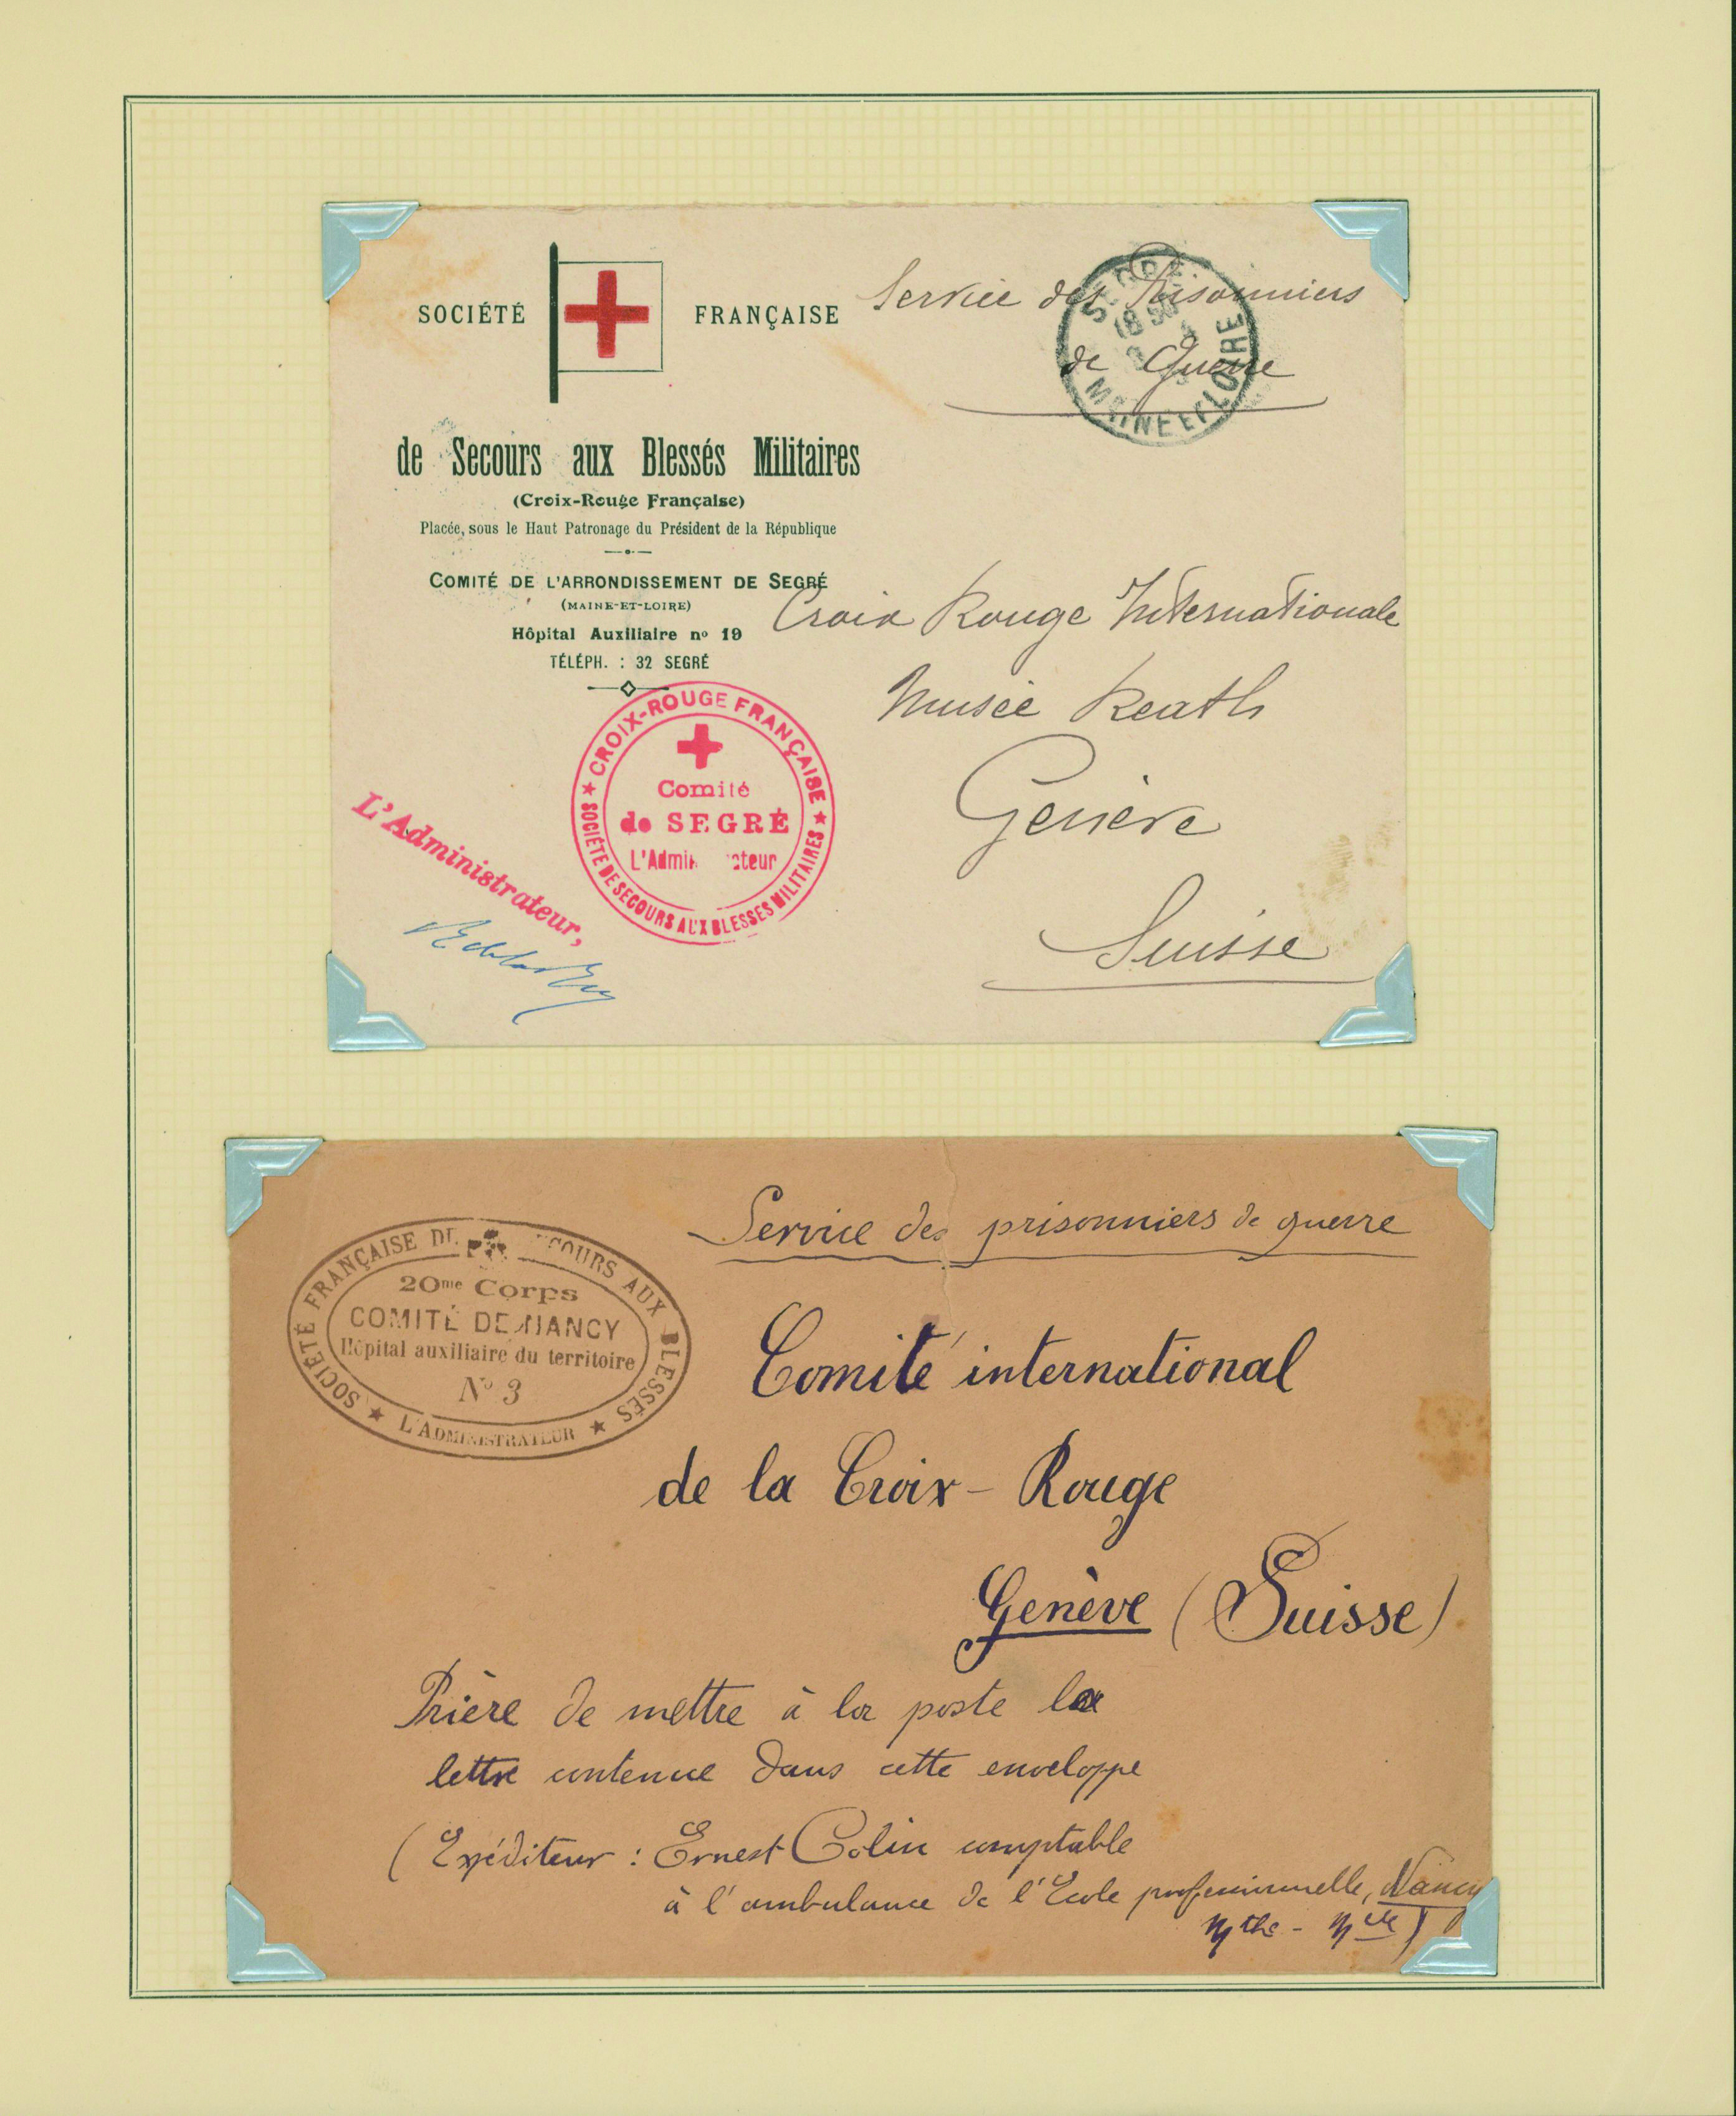 SOCIÉTÉ FRANÇAISE
de Secours aux Blessés Militaires
(Croix-Rouge Française)
Placée, sous le Haut Patronage du Président de la République
COMITÉ DE L'ARRONDISSEMENT DE SEGRÉ
(MAINE-ET-LOIRE)
Hôpital Auxiliaire nº 19
TÉLÉPH. : 32 SEGRÉ
Service des Prisonniers
de Guerre
SEGRÉ
18 30
MAINE ET LOIRE
Croix Rouge Internationale
Musée Reath
Genève
Suisse
★ CROIX-ROUGE FRANÇAISE ★
Comité
de SEGRÉ
L'Administrateur
SOCIÉTÉ DE SECOURS AUX BLESSES MILITAIRES
L'Administrateur,
Service des prisonniers de guerre
SOCIÉTÉ FRANÇAISE DE SECOURS AUX BLESSÉS
20me Corps
COMITÉ DE NANCY
Hôpital auxiliaire du territoire
No 3
★ L'ADMINISTRATEUR ★
Comité international
de la Croix-Rouge
Genève (Suisse)
Prière de mettre à la poste la
lettre contenue dans cette enveloppe
(Expéditeur : Ernest Colin comptable
à l'ambulance de l'Ecole professionnelle, Nancy
Mthe - Mlle)